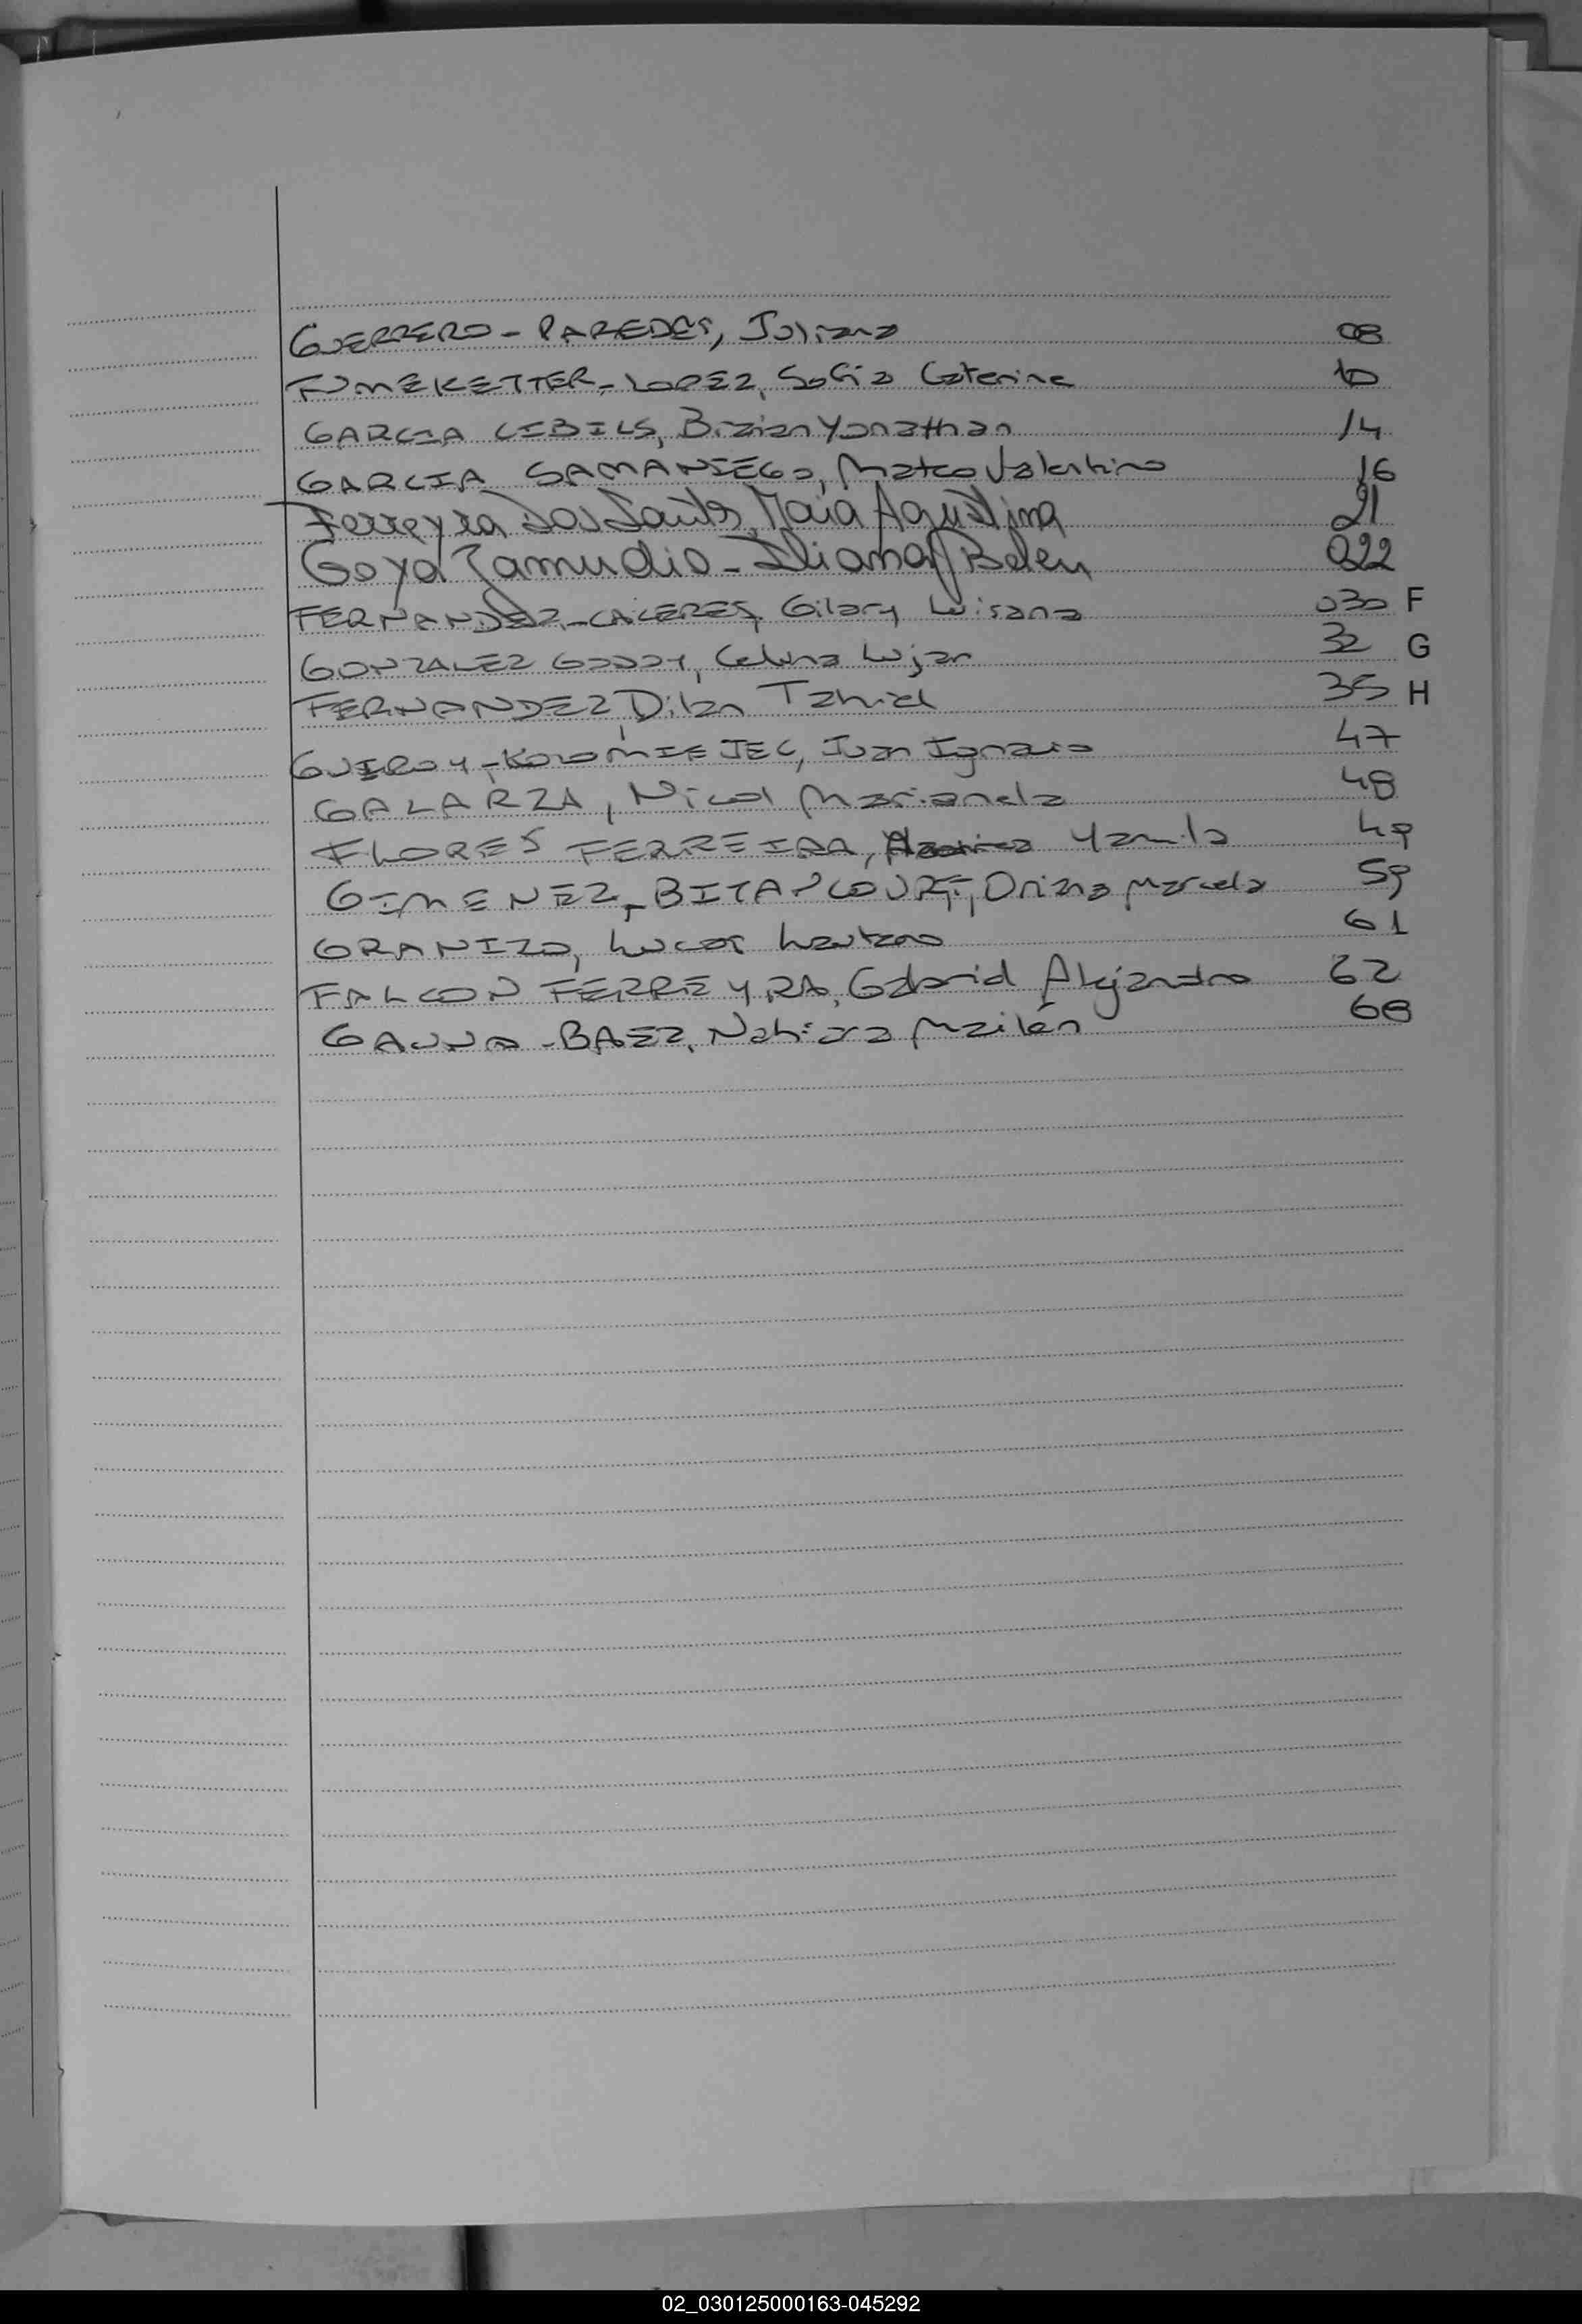 GUERRERO - PAREDES, Juliana 08
FUMEKETTER - LOPEZ, Sofia Caterine 10
GARCIA LEBILS, Braian Yonathan 14
GARCIA SAMANIEGO, Mateo Valentino 16
Ferreyra Dos Santos, Maia Agustina 21
Goya Zamudio - Iliana Belen 022
FERNANDEZ - CACERES, Gilary Luisana 030 F
GONZALEZ GODOY, Celina Lujan 32 G
FERNANDEZ, Dilan Tahiel 35 H
GUIROY - KOLOMIEJEC, Ivan Ignacio 47
GALARZA, Nicol Marianela 48
FLORES FERREIRA, Yamila 49
GIMENEZ - BITANCOURT, Oriana Marcela 59
GRANIZO, Lucas Lautaro 61
FALCON FERREYRA, Gabriel Alejandro 62
GAUNA - BAEZ, Nahiara Mailén 68
02_030125000163-045292